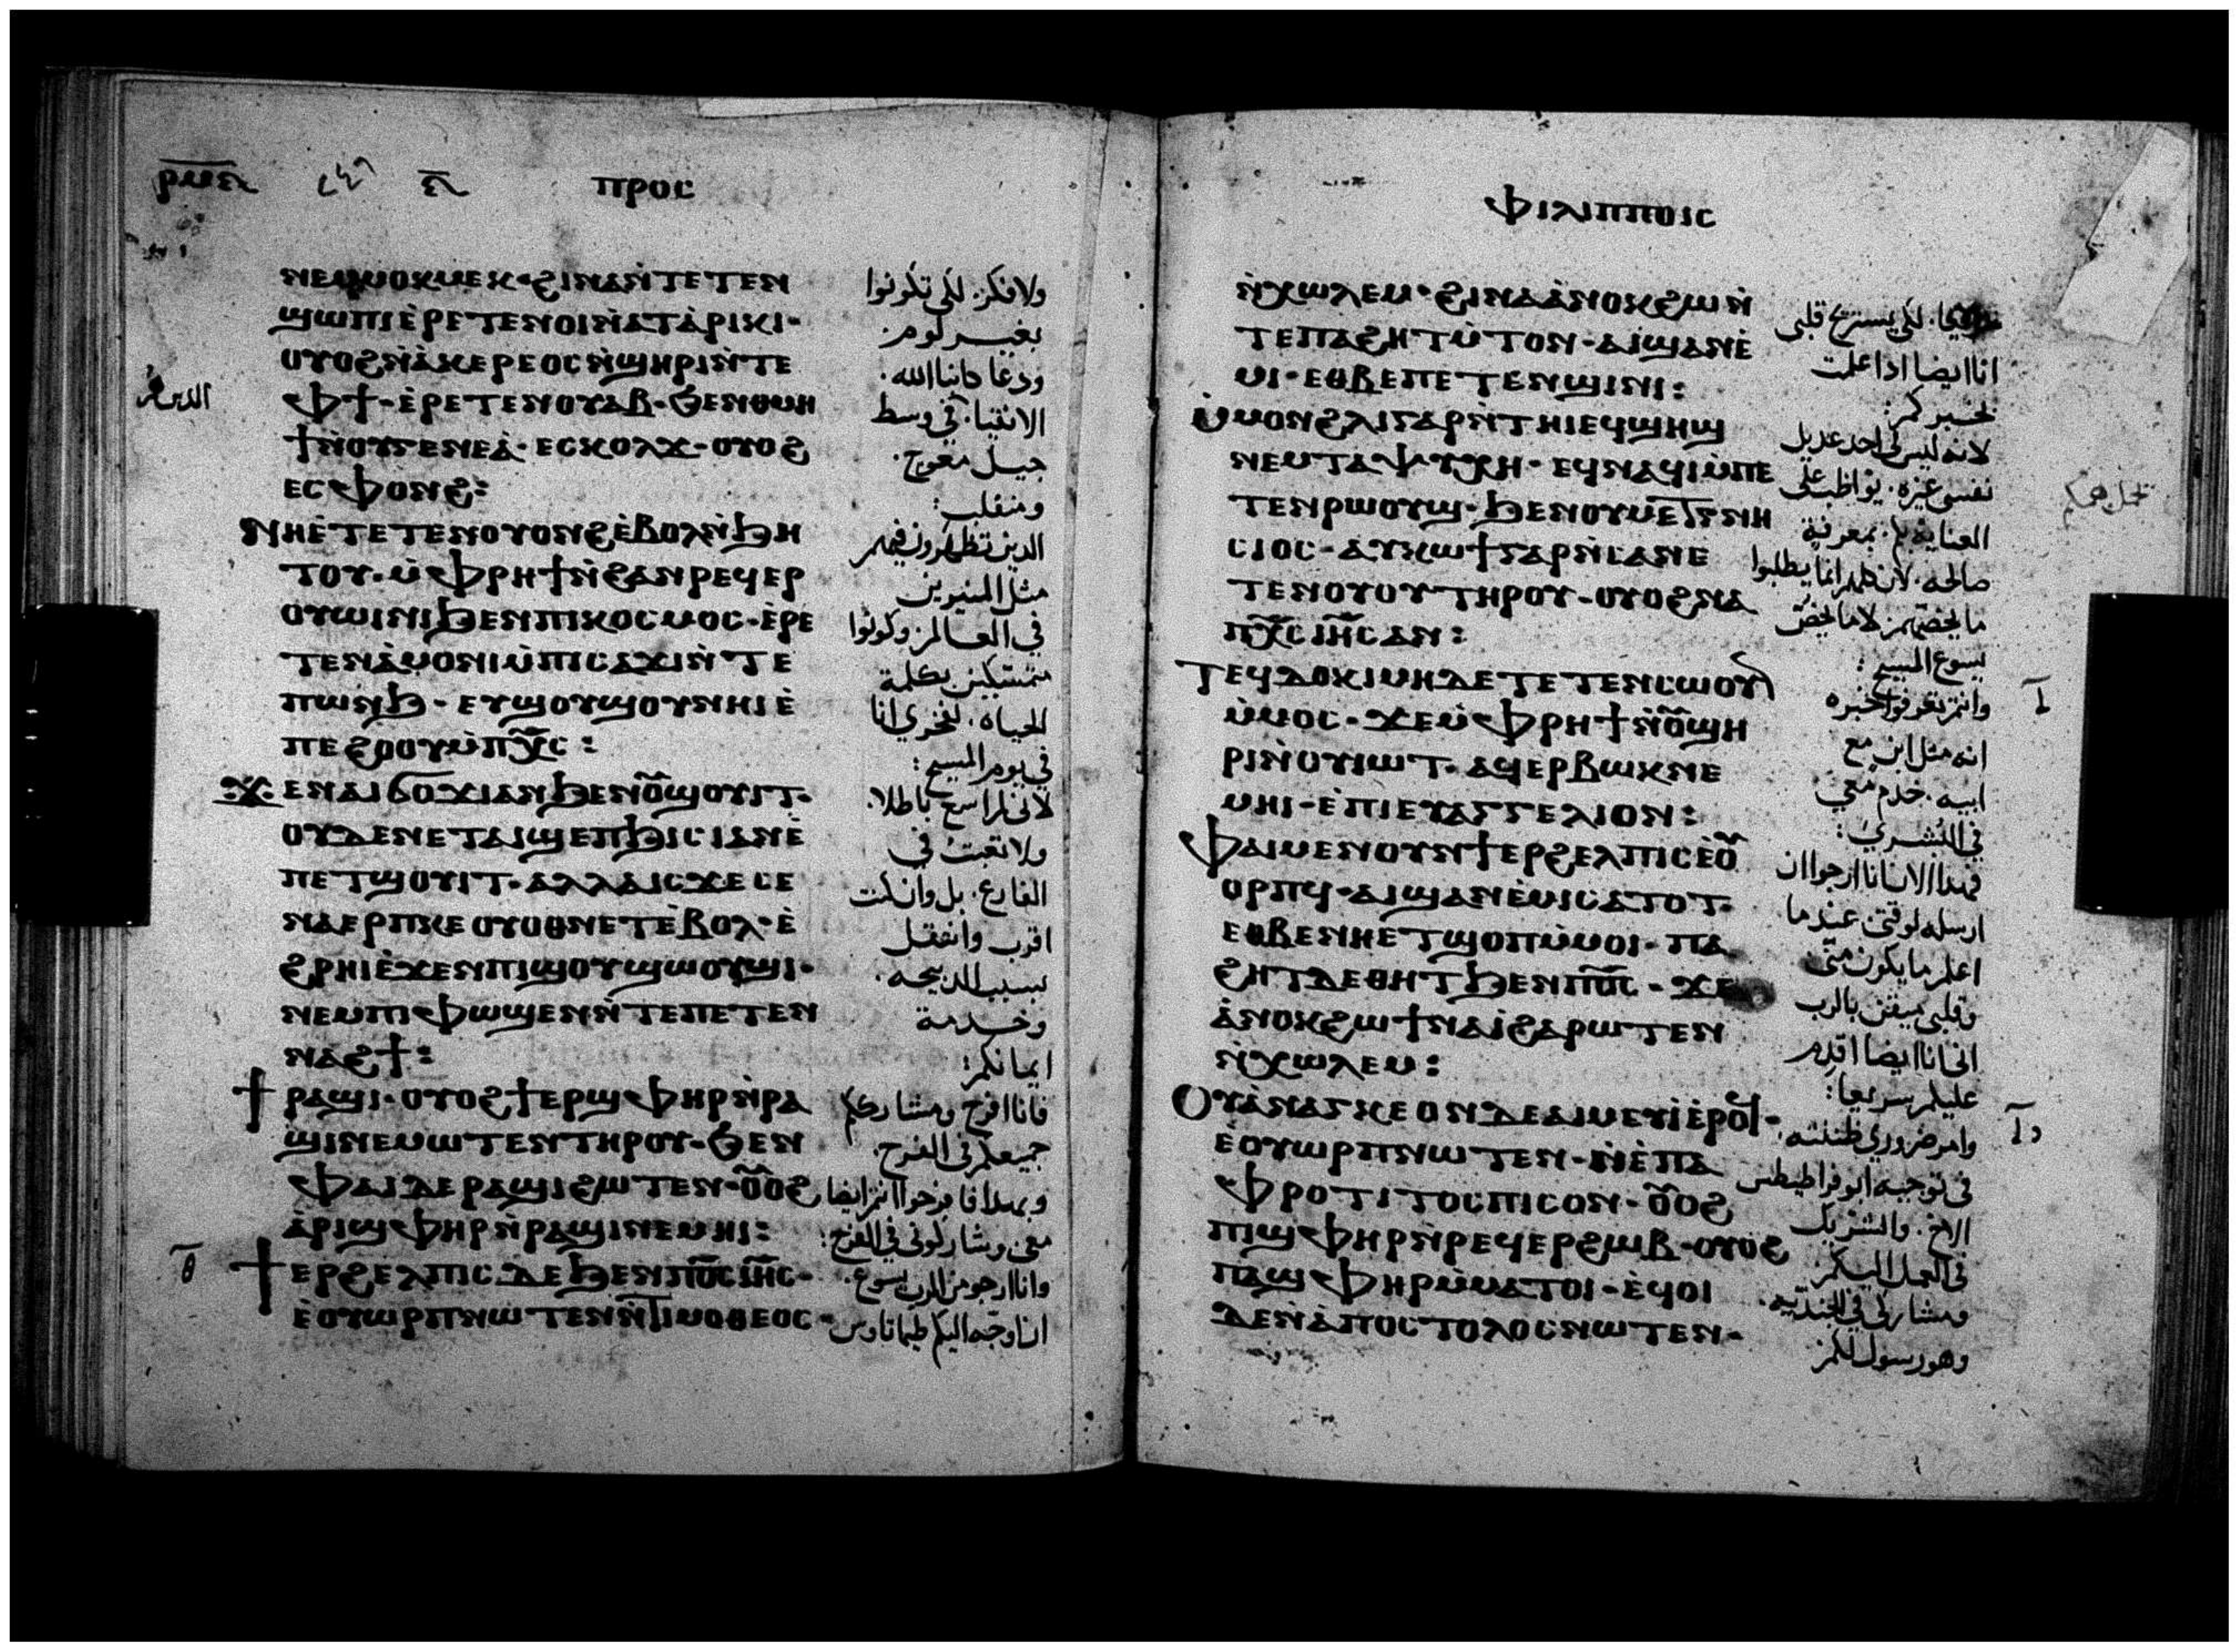 ⲡⲣⲟⲥ
ⲛⲉⲙⲙⲟⲕⲙⲉⲕ · ϩⲓⲛⲁⲛ̀ⲧⲉⲧⲉⲛ
ϣⲱⲡⲓⲉ̀ⲣⲉⲧⲉⲛⲟⲓⲛ̀ⲁⲧⲁ̀ⲣⲓⲕⲓ ·
ⲟⲩⲟϩⲛ̀ⲁ̀ⲕⲉⲣⲉⲟⲥⲛ̀ϣⲏⲣⲓⲛ̀ⲧⲉ
ⲫϯ · ⲉ̀ⲣⲉⲧⲉⲛⲟⲩⲁⲃ · ϧⲉⲛⲑⲙⲏ
ϯⲛ̀ⲟⲩⲅⲉⲛⲉⲁ̀ · ⲉⲥⲕⲟⲗϫ · ⲟⲩⲟϩ
ⲉⲥⲫⲟⲛϩ :
ⲛⲏⲉ̀ⲧⲉⲧⲉⲛⲟⲩⲟⲛϩⲉ̀ⲃⲟⲗⲛ̀ϧⲏ
ⲧⲟⲩ · ⲙ̀ⲫⲣⲏϯⲛ̀ϩⲁⲛⲣⲉϥⲉⲣ
ⲟⲩⲱⲓⲛⲓϧⲉⲛⲡⲓⲕⲟⲥⲙⲟⲥ · ⲉ̀ⲣⲉ
ⲧⲉⲛⲁ̀ⲙⲟⲛⲓⲙ̀ⲡⲓⲥⲁϫⲓⲛ̀ⲧⲉ
ⲡⲱⲛϧ · ⲉⲩϣⲟⲩϣⲟⲩⲛⲏⲓⲉ̀
ⲡⲉϩⲟⲟⲩⲙ̀ⲡⲭ̅ⲥ :
ϫⲉⲛⲁⲓϭⲟϫⲓⲁⲛϧⲉⲛⲟ̅ϣⲟⲩⲓⲧ ·
ⲟⲩⲇⲉⲛⲉⲧⲁⲓϣⲉⲡϧⲓⲥⲓⲁⲛⲉ̀
ⲡⲉⲧϣⲟⲩⲓⲧ · ⲁⲗⲗⲁⲓⲥϫⲉⲥⲉ
ⲛⲁⲉⲣⲡⲕⲉⲟⲩⲟⲑⲛⲉⲧⲉ̀ⲃⲟⲗ · ⲉ̀
ϩⲣⲏⲓⲉ̀ϫⲉⲛⲡⲓϣⲟⲩϣⲱⲟⲩϣⲓ ·
ⲛⲉⲙⲡⲓⲫⲱϣⲉⲛⲛ̀ⲧⲉⲡⲉⲧⲉⲛ
ⲛⲁϩϯ :
ϯⲣⲁϣⲓ · ⲟⲩⲟϩϯⲉⲣϣⲫⲏⲣⲛ̀ⲣⲁ
ϣⲓⲛⲉⲙⲱⲧⲉⲛⲧⲏⲣⲟⲩ · ϧⲉⲛ
ⲫⲁⲓⲇⲉⲣⲁϣⲓϩⲱⲧⲉⲛ · ⲟ̅ⲟϩ
ⲁ̀ⲣⲓϣⲫⲏⲣⲛ̀ⲣⲁϣⲓⲛⲉⲙⲏⲓ :
ⲑ̅
ϯⲉⲣϩⲉⲗⲡⲓⲥ · ⲇⲉϧⲉⲛⲡⲟ̅ⲥⲓⲏ̅ⲥ ·
ⲉ̀ⲟⲩⲱⲣⲡⲛⲱⲧⲉⲛⲛ̀ⲧⲓⲙⲟⲑⲉⲟⲥ ·
ولا فكر · لكى تكونوا
بغير لوم ·
ودعا كابنا الله ·
الانقيا · في وسط
جيل معوج ·
ومنقلب :
الدين تظهرون فيهم
مثل المنيرين
في العالم · وكونوا
متمسكين بكلمة
الحياه · لفخري انا
في يوم المسيح :
لانى لم اسع باطلا ·
ولا تعبت في
الفارغ · بل وان كنت
اقرب وانتقل
بسبب الدبيحه ·
وخدمة
ايمانكم :
فانا افرح ومشارككم
جميعكم فى الفرح ·
وبهدا فافرحوا انتم ايضا
معى وشاركونى فى الفرح :
وانا ارجو من الرب يسوع ·
ان اوجه اليكم طيماتاوس
ⲫⲓⲗⲓⲡⲡⲟⲓⲥ
ⲛ̀ⲭⲱⲗⲉⲙ · ϩⲓⲛⲁⲁ̀ⲛⲟⲕϩⲱⲛ̀
ⲧⲉⲡⲁϩⲏⲧⲙ̀ⲧⲟⲛ · ⲁⲓϣⲁⲛⲉ̀
ⲙⲓ · ⲉⲑⲃⲉⲡⲉⲧⲉⲛϣⲓⲛⲓ :
ⲙ̀ⲙⲟⲛϩⲗⲓⲅⲁⲣⲛ̀ⲧⲏⲓⲉϥϣⲏϣ
ⲛⲉⲙⲧⲁⲯⲩⲭⲏ · ⲉϥⲛⲁϥⲓⲙ̀ⲡⲉ
ⲧⲉⲛⲣⲱⲟⲩϣ · ϧⲉⲛⲟⲩⲙⲉⲧⲅⲛⲏ
ⲥⲓⲟⲥ · ⲁⲩⲕⲱϯⲅⲁⲣⲛ̀ⲥⲁⲛⲉ
ⲧⲉⲛⲟⲩⲟⲩⲧⲏⲣⲟⲩ · ⲟⲩⲟϩⲛⲁ
ⲡⲭ̅ⲥⲓⲏ̅ⲥⲁⲛ :
ⲧⲉϥⲇⲟⲕⲓⲙⲏⲇⲉⲧⲉⲧⲉⲛⲥⲱⲟⲩⲛ
ⲙ̀ⲙⲟⲥ · ϫⲉⲙ̀ⲫⲣⲏϯⲛ̀ⲟ̅ϣⲏ
ⲣⲓⲛ̀ⲟⲩⲓⲱⲧ · ⲁϥⲉⲣⲃⲱⲕⲛⲉ
ⲙⲏⲓ · ⲉ̀ⲡⲓⲉⲩⲁⲅⲅⲉⲗⲓⲟⲛ :
ⲫⲁⲓⲙⲉⲛⲟⲩⲛϯⲉⲣϩⲉⲗⲡⲓⲥⲉ̀ⲟ̅
ⲟⲣⲡϥ · ⲁⲓϣⲁⲛⲉ̀ⲙⲓⲥⲁⲧⲟⲧ ·
ⲉⲑⲃⲉⲛⲏⲉⲧϣⲟⲡⲙ̀ⲙⲟⲓ · ⲡⲁ
ϩⲏⲧⲇⲉⲑⲏⲧϧⲉⲛⲡⲟ̅ⲥ · ϫⲉ
ⲁ̀ⲛⲟⲕϩⲱϯⲛⲁⲓ̀ϩⲁⲣⲱⲧⲉⲛ
ⲛ̀ⲭⲱⲗⲉⲙ :
ⲟⲩⲁ̀ⲛⲁⲅⲕⲉⲟⲛⲇⲉⲁⲓⲙⲉⲩⲓ̀ⲉ̀ⲣⲟⲥ ·
ⲉ̀ⲟⲩⲱⲣⲡⲛⲱⲧⲉⲛ · ⲛ̀ⲉ̀ⲡⲁ
ⲫⲣⲟⲧⲓⲧⲟⲥⲡⲓⲥⲟⲛ · ⲟ̅ⲟϩ
ⲡⲓϣⲫⲏⲣⲛ̀ⲣⲉϥⲉⲣϩⲱⲃ · ⲟⲩⲟϩ
ⲡⲁϣⲫⲏⲣⲙ̀ⲙⲁⲧⲟⲓ · ⲉ̀ϥⲟⲓ
ⲇⲉⲛ̀ⲁ̀ⲡⲟⲥⲧⲟⲗⲟⲥⲛⲱⲧⲉⲛ ·
لكى يستريح قلبى
انا ايضا ادا علمت
بخبركم :
لانه ليس لى احد عديل
نفسى غيره · يواظب على
العناية بكم · بمعرفة
صالحه · لان كلهم انما يطلبوا
ما يخصهم · لا ما يخص
يسوع المسيح :
وانتم تعرفوا مخبره
انه مثل ابن مع
ابيه · خدم معي
في البشرى :
فهدا الان انا ارجوا ان
ارسله لوقتى عندما
اعلم ما يكون منى
وقلبى ميقن بالرب
انى انا ايضا اقدم
عليكم سريعا :
وامر ضروري ظننته ·
فى توجيه ابوفراطيطس
الاخ · والشريك
فى العمل
ومشاركى فى الجنديه ·
وهو رسول لكم